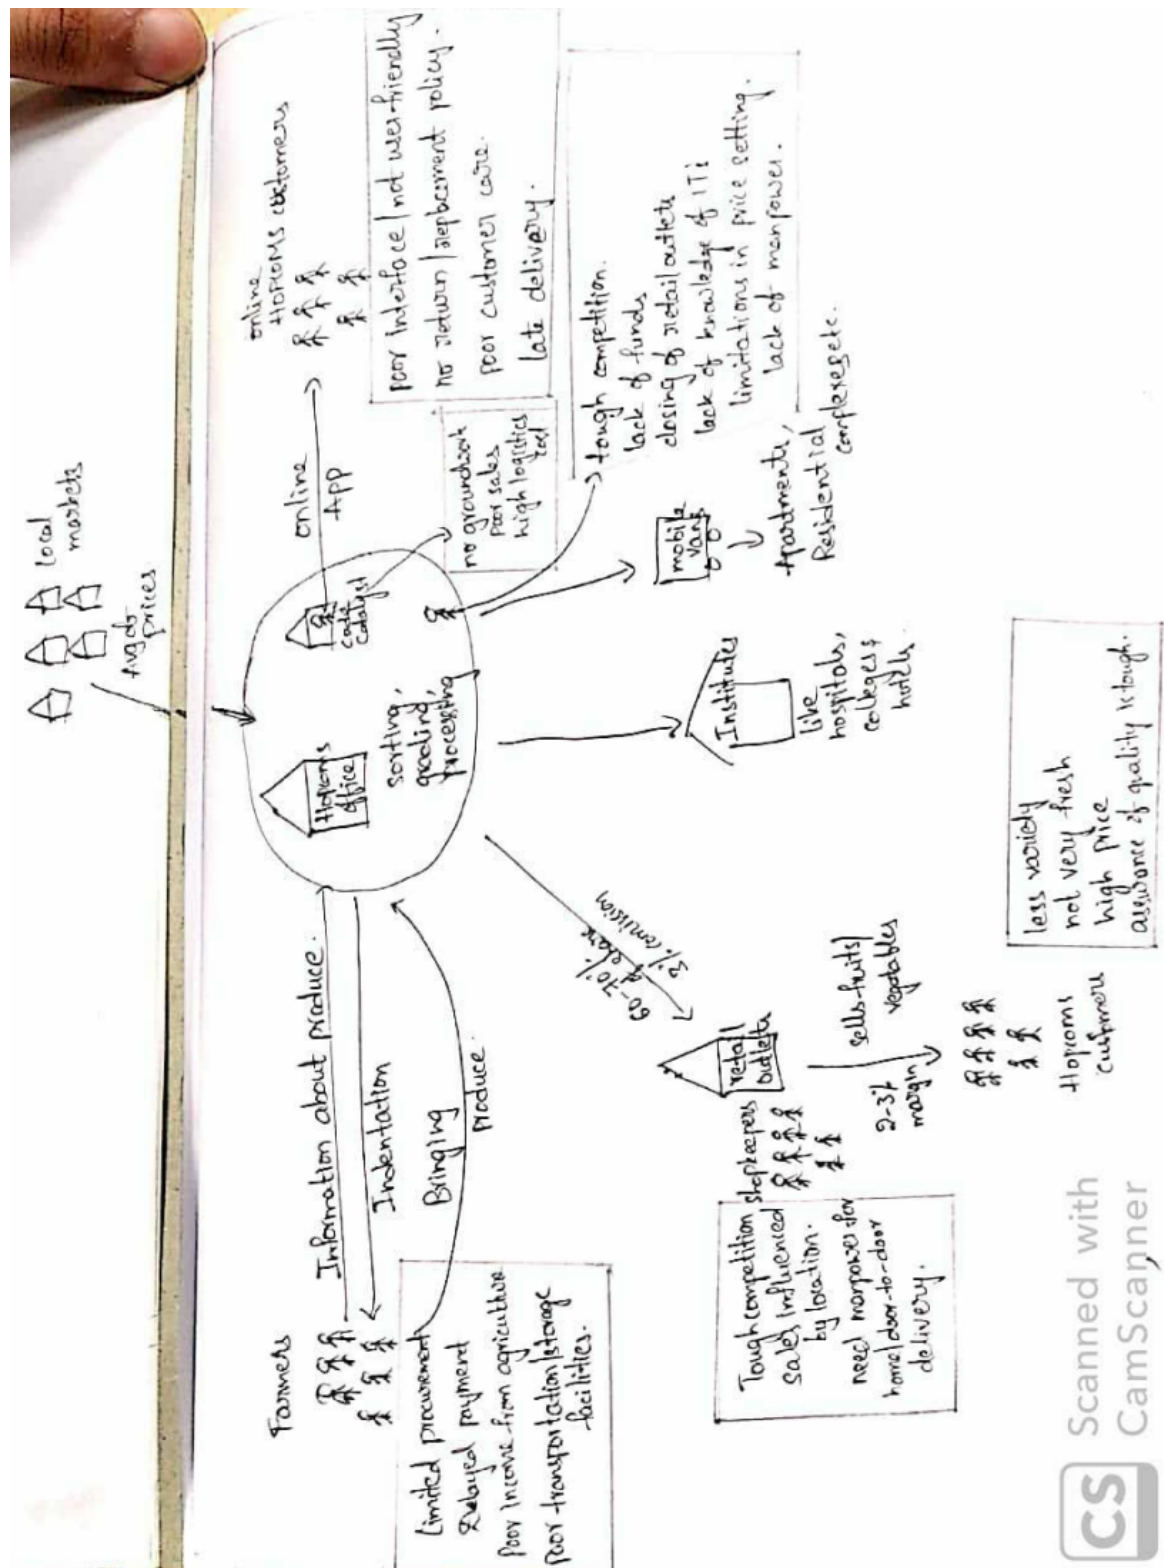 local
markets
Avg of
prices
Farmers
Information about produce.
Indentation
Bringing
produce.
Limited procurement
Delayed payment
Poor income from agriculture
Poor transportation/storage
facilities.
Hopcoms
office
sorting,
grading,
processing
code
catalyst
online
App
online
HOPCOMS customers
poor interface/not user-friendly
no return/replacement policy.
poor customer care.
late delivery.
no groundwork
poor sales
high logistics
cost
tough competition.
lack of funds
closing of retail outlets
lack of knowledge of ITi
limitations in price setting.
lack of manpower.
mobile
vans
Apartments,
Residential
complexes etc.
Institutes
like
hospitals,
colleges &
hotels.
60-70%
of share
3% comission
retail
outlets
shopkeepers
Tough competition
sales influenced
by location.
need manpower for
home/door-to-door
delivery.
sells-fruits/
vegetables
2-3%
margin
Hopcoms
customers
less variety
not very fresh
high price
assurance of quality is tough.
CS
Scanned with
CamScanner